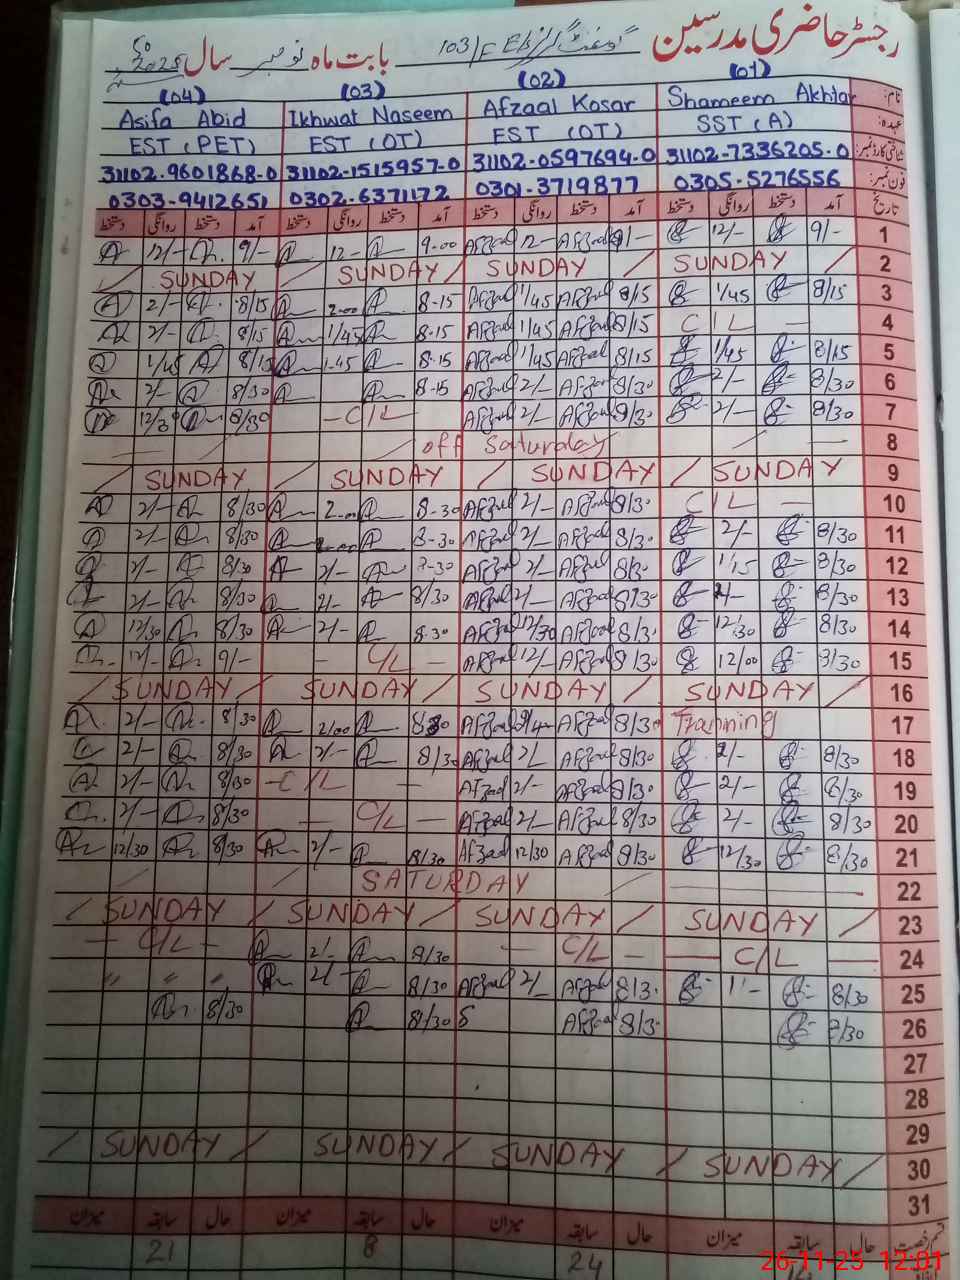 رجسٹر حاضری مدرسین گورنمنٹ گرلز 103/F E/S بابت ماہ نومبر سال 2025
(04) (03) (02) (01)
Asifa Abid Ikhwat Naseem Afzaal Kosar Shameem Akhtar نام:
EST (PET) EST (OT) EST (OT) SST (A) عہدہ:
31102-9601868-0 31102-1515957-0 31102-0597694-0 31102-7336205-0 شناختی کارڈ نمبر:
0303-9412651 0302-6371172 0301-3719877 0305-5276556 فون نمبر:
دستخط روانگی دستخط آمد دستخط روانگی دستخط آمد دستخط روانگی دستخط آمد دستخط روانگی دستخط آمد تاریخ
12/- 9/- 12- 9-00 Afzaal 12- Afzaal 9/- 12/- 9/- 1
SUNDAY SUNDAY SUNDAY SUNDAY 2
2/- 8/15 2-00 8-15 Afzaal 1/45 Afzaal 8/15 1/45 8/15 3
2/- 8/15 1/45 8-15 Afzaal 1/45 Afzaal 8/15 C/L - 4
1/45 8/15 1-45 8-15 Afzaal 1/45 Afzaal 8/15 1/45 8/15 5
2/- 8/30 8-15 Afzaal 2/- Afzaal 8/30 2/- 8/30 6
12/30 8/30 -C/L- Afzaal 2/- Afzaal 8/30 2/- 8/30 7
off Saturday 8
SUNDAY SUNDAY SUNDAY SUNDAY 9
2/- 8/30 2-00 8-30 Afzaal 2/- Afzaal 8/30 C/L - 10
2/- 8/30 8-30 Afzaal 2/- Afzaal 8/30 2/- 8/30 11
2/- 8/30 2/- 8-30 Afzaal 2/- Afzaal 8/30 1/15 8/30 12
2/- 8/30 2/- 8/30 Afzaal 2/- Afzaal 8/30 2/- 8/30 13
12/30 8/30 2/- 8-30 Afzaal 12/30 Afzaal 8/3. 12/30 8/30 14
12/- 9/- - C/L - Afzaal 12/- Afzaal 8/30 12/00 8/30 15
SUNDAY SUNDAY SUNDAY SUNDAY 16
2/- 8/30 2/00 8/30 Afzaal Afzaal 8/30 Tranning 17
2/- 8/30 2/- 8/30 Afzaal 2/- Afzaal 8/30 2/- 8/30 18
2/- 8/30 -C/L - Afzaal 2/- Afzaal 8/30 2/- 8/30 19
2/- 8/30 - C/L - Afzaal 2/- Afzaal 8/30 2/- 8/30 20
12/30 8/30 2/- 8/30 Afzaal 12/30 Afzaal 8/30 12/30 8/30 21
SATURDAY 22
SUNDAY SUNDAY SUNDAY SUNDAY 23
- C/L - 2/- 8/30 - C/L - - C/L - 24
" " " 2/- 8/30 Afzaal 2/- Afzaal 8/3. 8/30 25
8/30 8/30 Afzaal 8/3. 8/30 26
27
28
29
SUNDAY SUNDAY SUNDAY SUNDAY 30
31
میزان سابقہ حال میزان سابقہ حال میزان سابقہ حال میزان سابقہ حال قسم رخصت
21 8 24
26-11-25 12:01